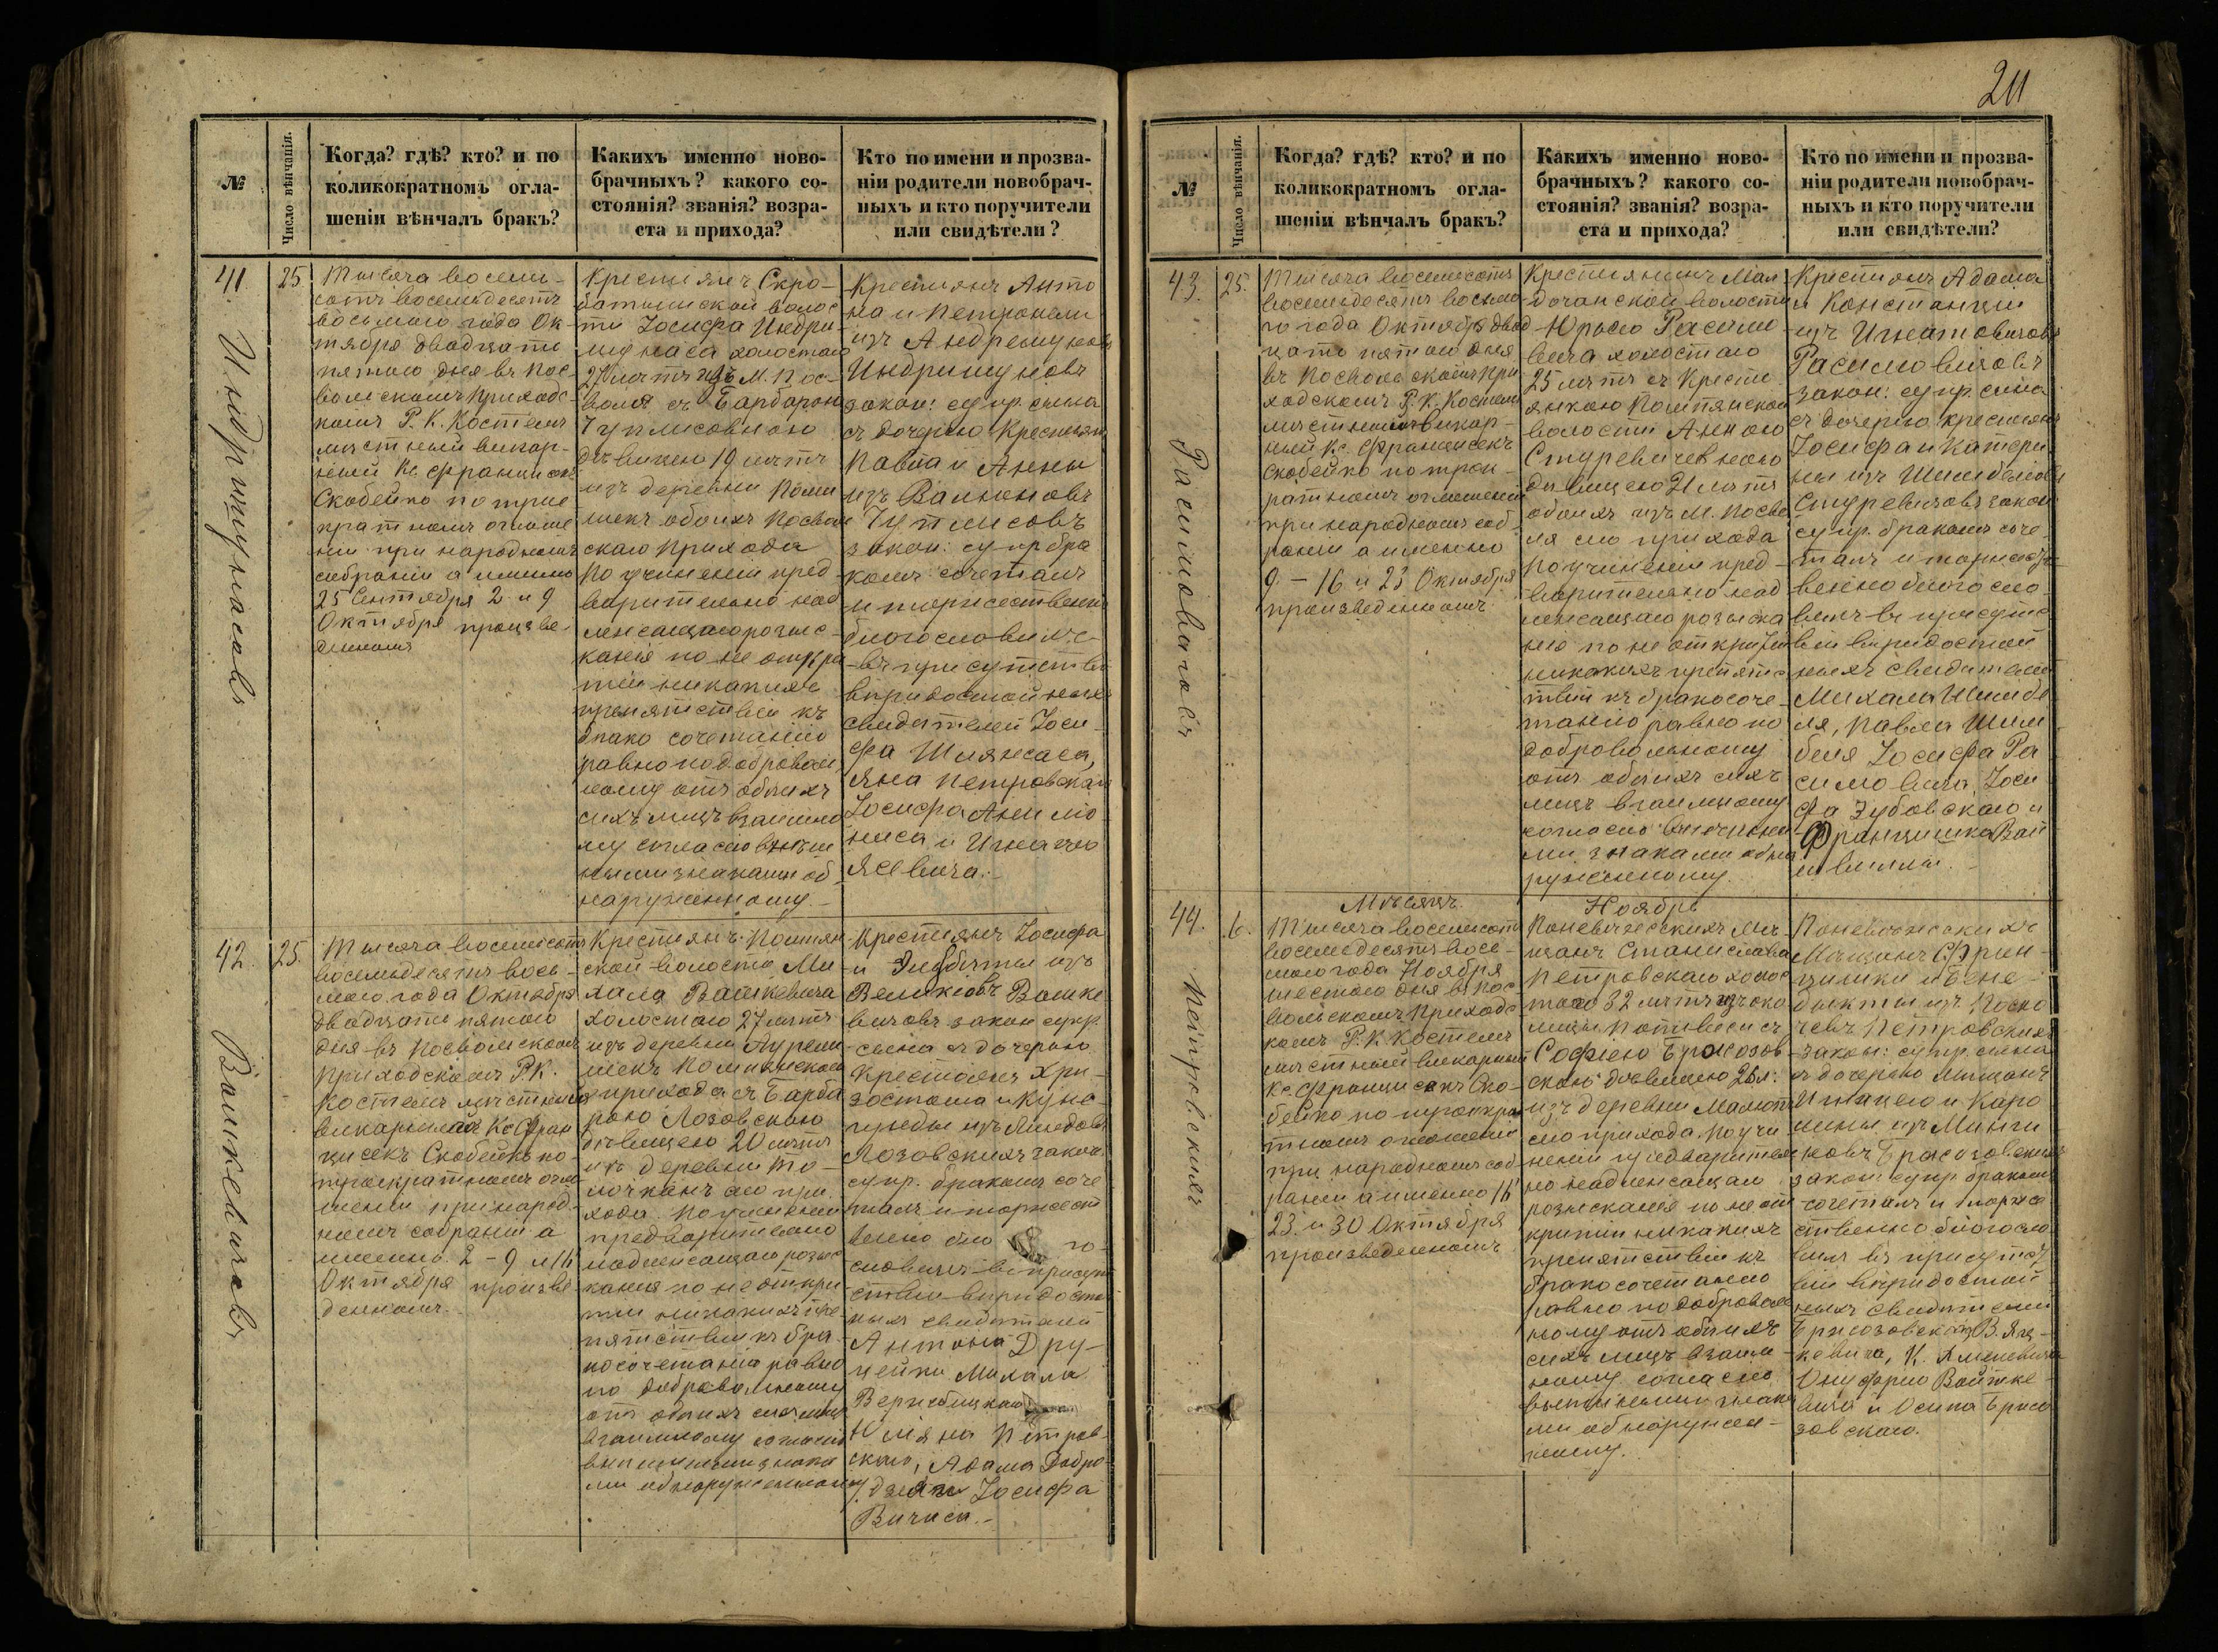 211
№
Число вѣнчанія.
Когда? гдѣ? кто? и по
коликократномъ огла-
шеніи вѣнчалъ бракъ?
Какихъ именно ново-
брачныхъ? какого со-
стоянія? званія? возра-
ста и прихода?
Кто по имени и прозва-
ніи родители новобрач-
ныхъ и кто поручители
или свидѣтели?
41
25
Индришунасовъ
Тысяча восемь-
сотъ восемьдесятъ
восьмого года Ок-
тября двадцать
пятого дня въ Пос-
вольскомъ приходс-
комъ Р. К. Костелѣ
мѣстный викар-
ный Кс. Францисекъ
Скобейко по трое
кратномъ оглаше
ніи при народномъ
собраніи а именно
25 Сентября 2 и 9
Октября произве-
денномъ
Крестьянъ Скро-
ботишской волос
ти Іосифа Индри-
шунаса холостаго
27 лѣтъ изъ М. Пос-
воля съ Барбарою
Чуплисовною
дѣвицею 19 лѣтъ
изъ деревни
обоихъ Посволь
скаго прихода
По учиненіи пред
варительно над
лежащаго розыс-
канія по не откры
тіи никакихъ
препятствій къ
брако сочетанію
равно по доброволь
ному отъ обоихъ
сихъ лицъ взаимно
му согласію внѣш
ными знаками об-
наруженному.
Крестьянъ Анто
на и Петронели
изъ
Индришуновъ
закон: супр. сына
съ дочерью Крестьянъ
Павла и Анны
изъ Валюновъ
закон: супр бра
комъ сочеталъ
и торжественно
благословилъ
въ присутствіи
вѣридостойныхъ
свидѣтелей Іоси-
фа Шляжаса,
Яна Петровскаго
Іосифа
и Игнатія
Ясевича.
42
25
Вашкевичевъ
Тысяча восемьсотъ
восемьдесятъ вось-
мого года Октября
двадцать пятого
дня въ Посвольскомъ
приходскомъ Р.К.
Костелѣ мѣстный
викарный Кс Фран
цисекъ Скобейко по
троекратномъ огла
шеніи при народ-
номъ собраніи а
именно 2 - 9 и 16
Октября произве
денномъ.
Крестьянъ
ской волости Ми
хала Вашкевича
холостаго 27 лѣтъ
изъ деревни
прихода съ Барба
рою Лозовскою
дѣвицею 20 лѣтъ
изъ деревни То-
лочканъ сего при-
хода. По учиненіи
предварительно
надлежащаго розыс
канія по не откры
тіи никакихъ пре
пятствій къ бра-
косочетанію равно
по добровольному
отъ обоихъ сихъ лицъ
взаимному согласію
внѣшними знака
ми обнаруженному
Крестьянъ Іосифа
и Эльжбеты изъ
Вашке
вичовъ закон супр.
сына съ дочерью
Крестьянъ Хри-
зостома и Куне-
гунды изъ
Лозовскихъ закон.
супр. бракомъ соче
талъ и торжест
венно бла го-
словилъ въ присут
ствіи вѣридостой
ныхъ свидѣтелей
Антона Дру-
чейки Михала
Вержбицкаго
Юліяна Петров-
скаго, Адама
Іосифа
43.
25.
Расимовичовъ
Тысяча восемьсотъ
восемьдесятъ восьмо
го года Октября двад
цать пятого дня
въ Посвольскомъ при
ходскомъ Р.К. Костелѣ
мѣстный викар-
ный Кс. Францисекъ
Скобейко по трок-
ратномъ оглашеніи
при народномъ соб-
раніи а именно
9 - 16 и 23 Октября
произведенномъ
Крестьянинъ
волости
Юрью Расимо
вича холостаго
25 лѣтъ съ Кресть
янкою
волости Анною
Стуревичевною
дѣвицею 21 лѣтъ
обоихъ изъ М. Посво
ля сего прихода
По учиненіи пред-
варительно над
лежащаго розыска
нія по не открытіи
никакихъ препятс
твій къ бракосоче-
танію равно по
добровольному
отъ обоихъ сихъ
лицъ взаимному
согласію внѣшны
ми знаками обна
руженному.
Крестьянъ Адама
и Констанціи
изъ Игнатовичовъ
Расимовичовъ
закон: супр. сына
съ дочерью крестьянъ
Іосифа и Катери
ны изъ Шимбелевъ
Стуревичовъ закон
супр. бракомъ соче-
талъ и торжест-
венно благосло
вилъ въ присутс
віи вѣридостой
ныхъ свидѣтелей
Михала Шимбе
ля, Павла Шим
беля Іосифа Ра
симовича, Іоси
фа Зубовскаго и
Францишка
Мѣсяцъ
Ноябрь
44.
6.
Петровскихъ
Тысяча восемьсотъ
восемьдесятъ вось-
мого года Ноября
шестого дня въ Пос-
вольскомъ приходс
комъ Р.К. Костелѣ
мѣстный викарный
Кс. Францисекъ Ско-
бейко по троекра
тномъ оглашеніи
при народномъ соб
раніи а именно 16
23 и 30 Октября
произведенномъ
Поневѣжскихъ мѣ-
щанъ Станислава
Петровскаго холос
таго 32 лѣтъ изъ око
лицы съ
Софіею Брысозов
скою дѣвицею 26 л:
изъ деревни
сего прихода. По учи
неніи предварительно
надлежащаго
розысканія по не от
крытіи никакихъ
препятствій къ
бракосочетанію
равно по доброволь
ному отъ обоихъ
сихъ лицъ взаим-
ному согласію
внѣшными знака
ми обнаружен-
ному.
Поневѣжскихъ
Мѣщанъ Фран-
цишка и Бене
дикты изъ
Петровскихъ
закон: супр. сына
съ дочерью мѣщанъ
Игнацего и Каро
лины изъ
Брысозовскихъ
закон супр. бракомъ
сочеталъ и торже
ственно благосло
вилъ въ присутст
віи вѣридостой-
ныхъ свидѣтелей
Брысозовскаго В. Яц-
кевича,
Онуфрію Войтке-
вича и Осипа Брысо
зовскаго.